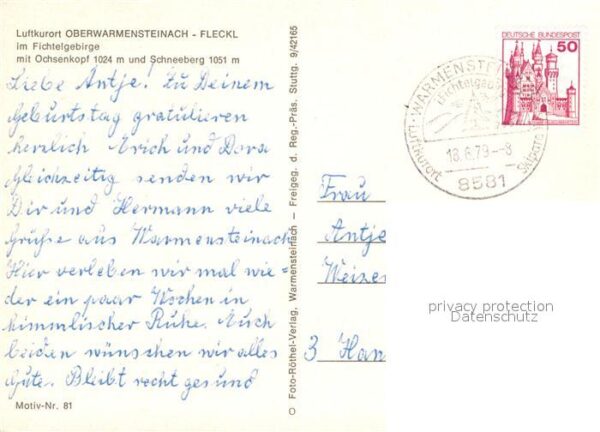 Luftkurort OBERWARMENSTEINACH - FLECKL
im Fichtelgebirge
mit Ochsenkopf 1024 m und Schneeberg 1051 m
Liebe Antje! Zu Deinem
Geburtstag gratulieren
herzlich Erich und Dora
Gleichzeitig senden wir
Dir und Hermann viele
Grüße aus Warmensteinach
Hier verleben wir mal wie-
der ein paar Wochen in
himmlischer Ruhe. Euch
beiden wünschen wir alles
Gute. Bleibt recht gesund
Motiv-Nr. 81
Foto-Röthel-Verlag, Warmensteinach — Freigeg. d. Reg.-Präs. Stuttg. 9/42165
DEUTSCHE BUNDESPOST
50
WARMENSTEI
Fichtelgeb
18.6.79--8
Luftkurort
Skipara
8581
Frau
Antje
Weize
3 Han
privacy protection
Datenschutz